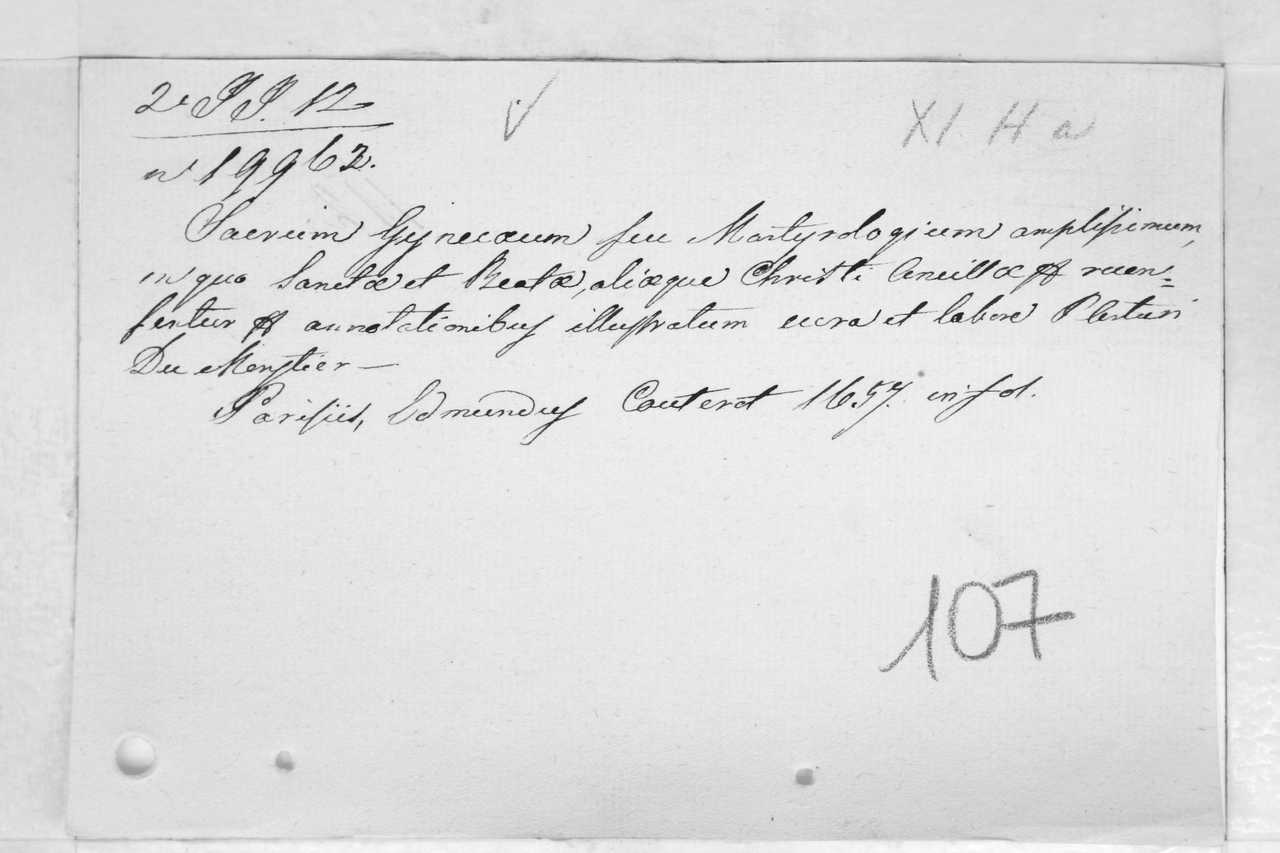 2e J J. 12
XI H a
n° 19963.
Sacrum Gynecæum seu Martyrologium amplissimum,
in quo Sanctæ et Beatæ, aliæque Christi Ancillæ recen=
sentur annotationibus illustratum cura et labore
Du Monstier —
Parisiis, Edmundus Couterot 1657. in fol.
107